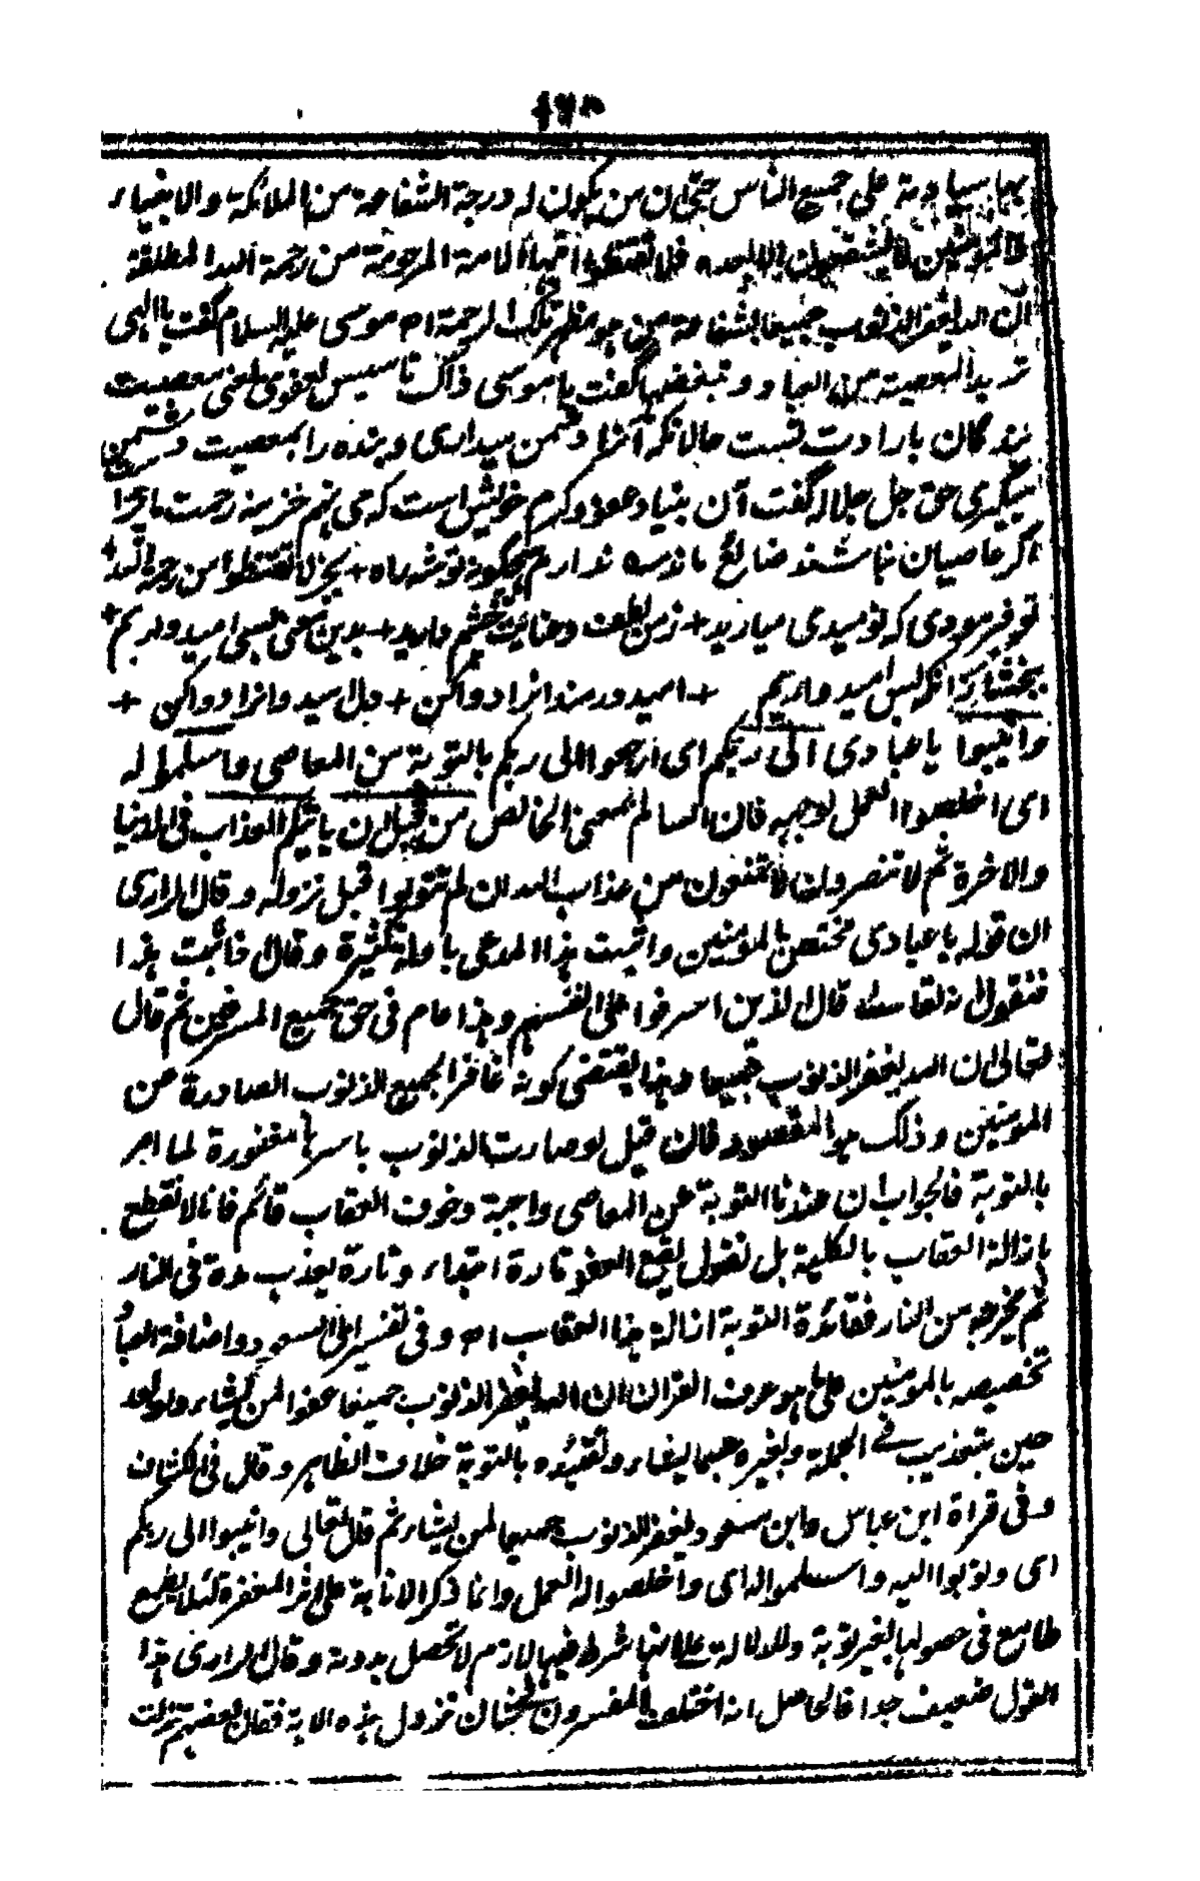 بها سياوية على جميع الناس حتى ان من يكون له درجة الشفاعة من الملائكة والانبياء
والمؤمنين لا يشفعون الا لعبده فلا تقنطوا ايها الامة المرحومة من رحمة الله المطلقة
ان الله يغفر الذنوب جميعا بشفاعة من هو مظهر تلك الرحمة اه موسى عليه السلام گفت يا الهى
تريد المعصية من العباد وتبغضها گفت يا موسى ذاك تاسيس لعفوى يعنى معصيت
بندگان بارادت تست حالانكه آنرا دشمن ميدارى وبنده را بمعصيت دشمن
ميگيرى حق جل جلاله گفت آن بنياد عفو وكرم خويش است كه مى نهم خزينه رحمت ما پر
اگر عاصيان نباشند ضائع ماند ندارم هيچگونه توشه راه + بجز لا تقنطوا من رحمة الله +
تو فرمودى كه نوميدى مياريد + زمن لطف وعنايت چشم داريد + بدين معنى بسى اميدواريم +
ببخشا زانكه بس اميدواريم + اميد دردمندانرا دوا كن + دل اميدوانرا روا كن +
وانيبوا يا عبادى الى ربكم اى ارجعوا الى ربكم بالتوبة من المعاصى واسلموا له
اى اخلصوا العمل لوجهه فان السالم بمعنى الخالص من قبل ان ياتيكم العذاب فى الدنيا
والاخرة ثم لا تنصرون لا تمنعون من عذاب الله ان لم تتوبوا قبل نزوله وقال الرازى
ان قوله يا عبادى مختص بالمؤمنين واثبت هذا المدعى بادلة كثيرة وقال فاثبت هذا
فنقول انه تعالى قال الذين اسرفوا على انفسهم وهذا عام فى حق جميع المسرفين ثم قال
تعالى ان الله يغفر الذنوب جميعا وهذا يقتضى كونه غافرا لجميع الذنوب الصادرة عن
المؤمنين وذلك هو المقصود فان قيل لو صارت الذنوب باسرها مغفورة لما امر
بالتوبة فالجواب ان عندنا التوبة عن المعاصى واجبة وخوف العقاب قائم فانا لا نقطع
بازالة العقاب بالكلية بل نقول يقع العفو تارة ابتداء وتارة يعذب مدة فى النار
ثم يخرجه من النار ففائدة التوبة ازالة هذا العقاب اه وفى تفسير ابى السعود واضافة العباد
تخصيصه بالمؤمنين على ما هو عرف القران ان الله يغفر الذنوب جميعا عفوا لمن يشاء ولو بعد
حين بتعذيب فى الجملة وبغيره حسبما يشاء وتقييده بالتوبة خلاف الظاهر وقال فى الكشاف
وفى قراة ابن عباس وابن مسعود يغفر الذنوب جميعا لمن يشاء ثم قال تعالى وانيبوا الى ربكم
اى وتوبوا اليه واسلموا له اى واخلصوا له العمل وانما ذكر الانابة على اثر المغفرة لئلا يطمع
طامع فى حصولها بغير توبة وللدلالة على انها شرط فيها لازم لا تحصل بدونه وقال الرازى هذا
القول ضعيف جدا فالحاصل انه اختلف المفسرون بحسب شان نزول هذه الاية فقال بعضهم نزلت